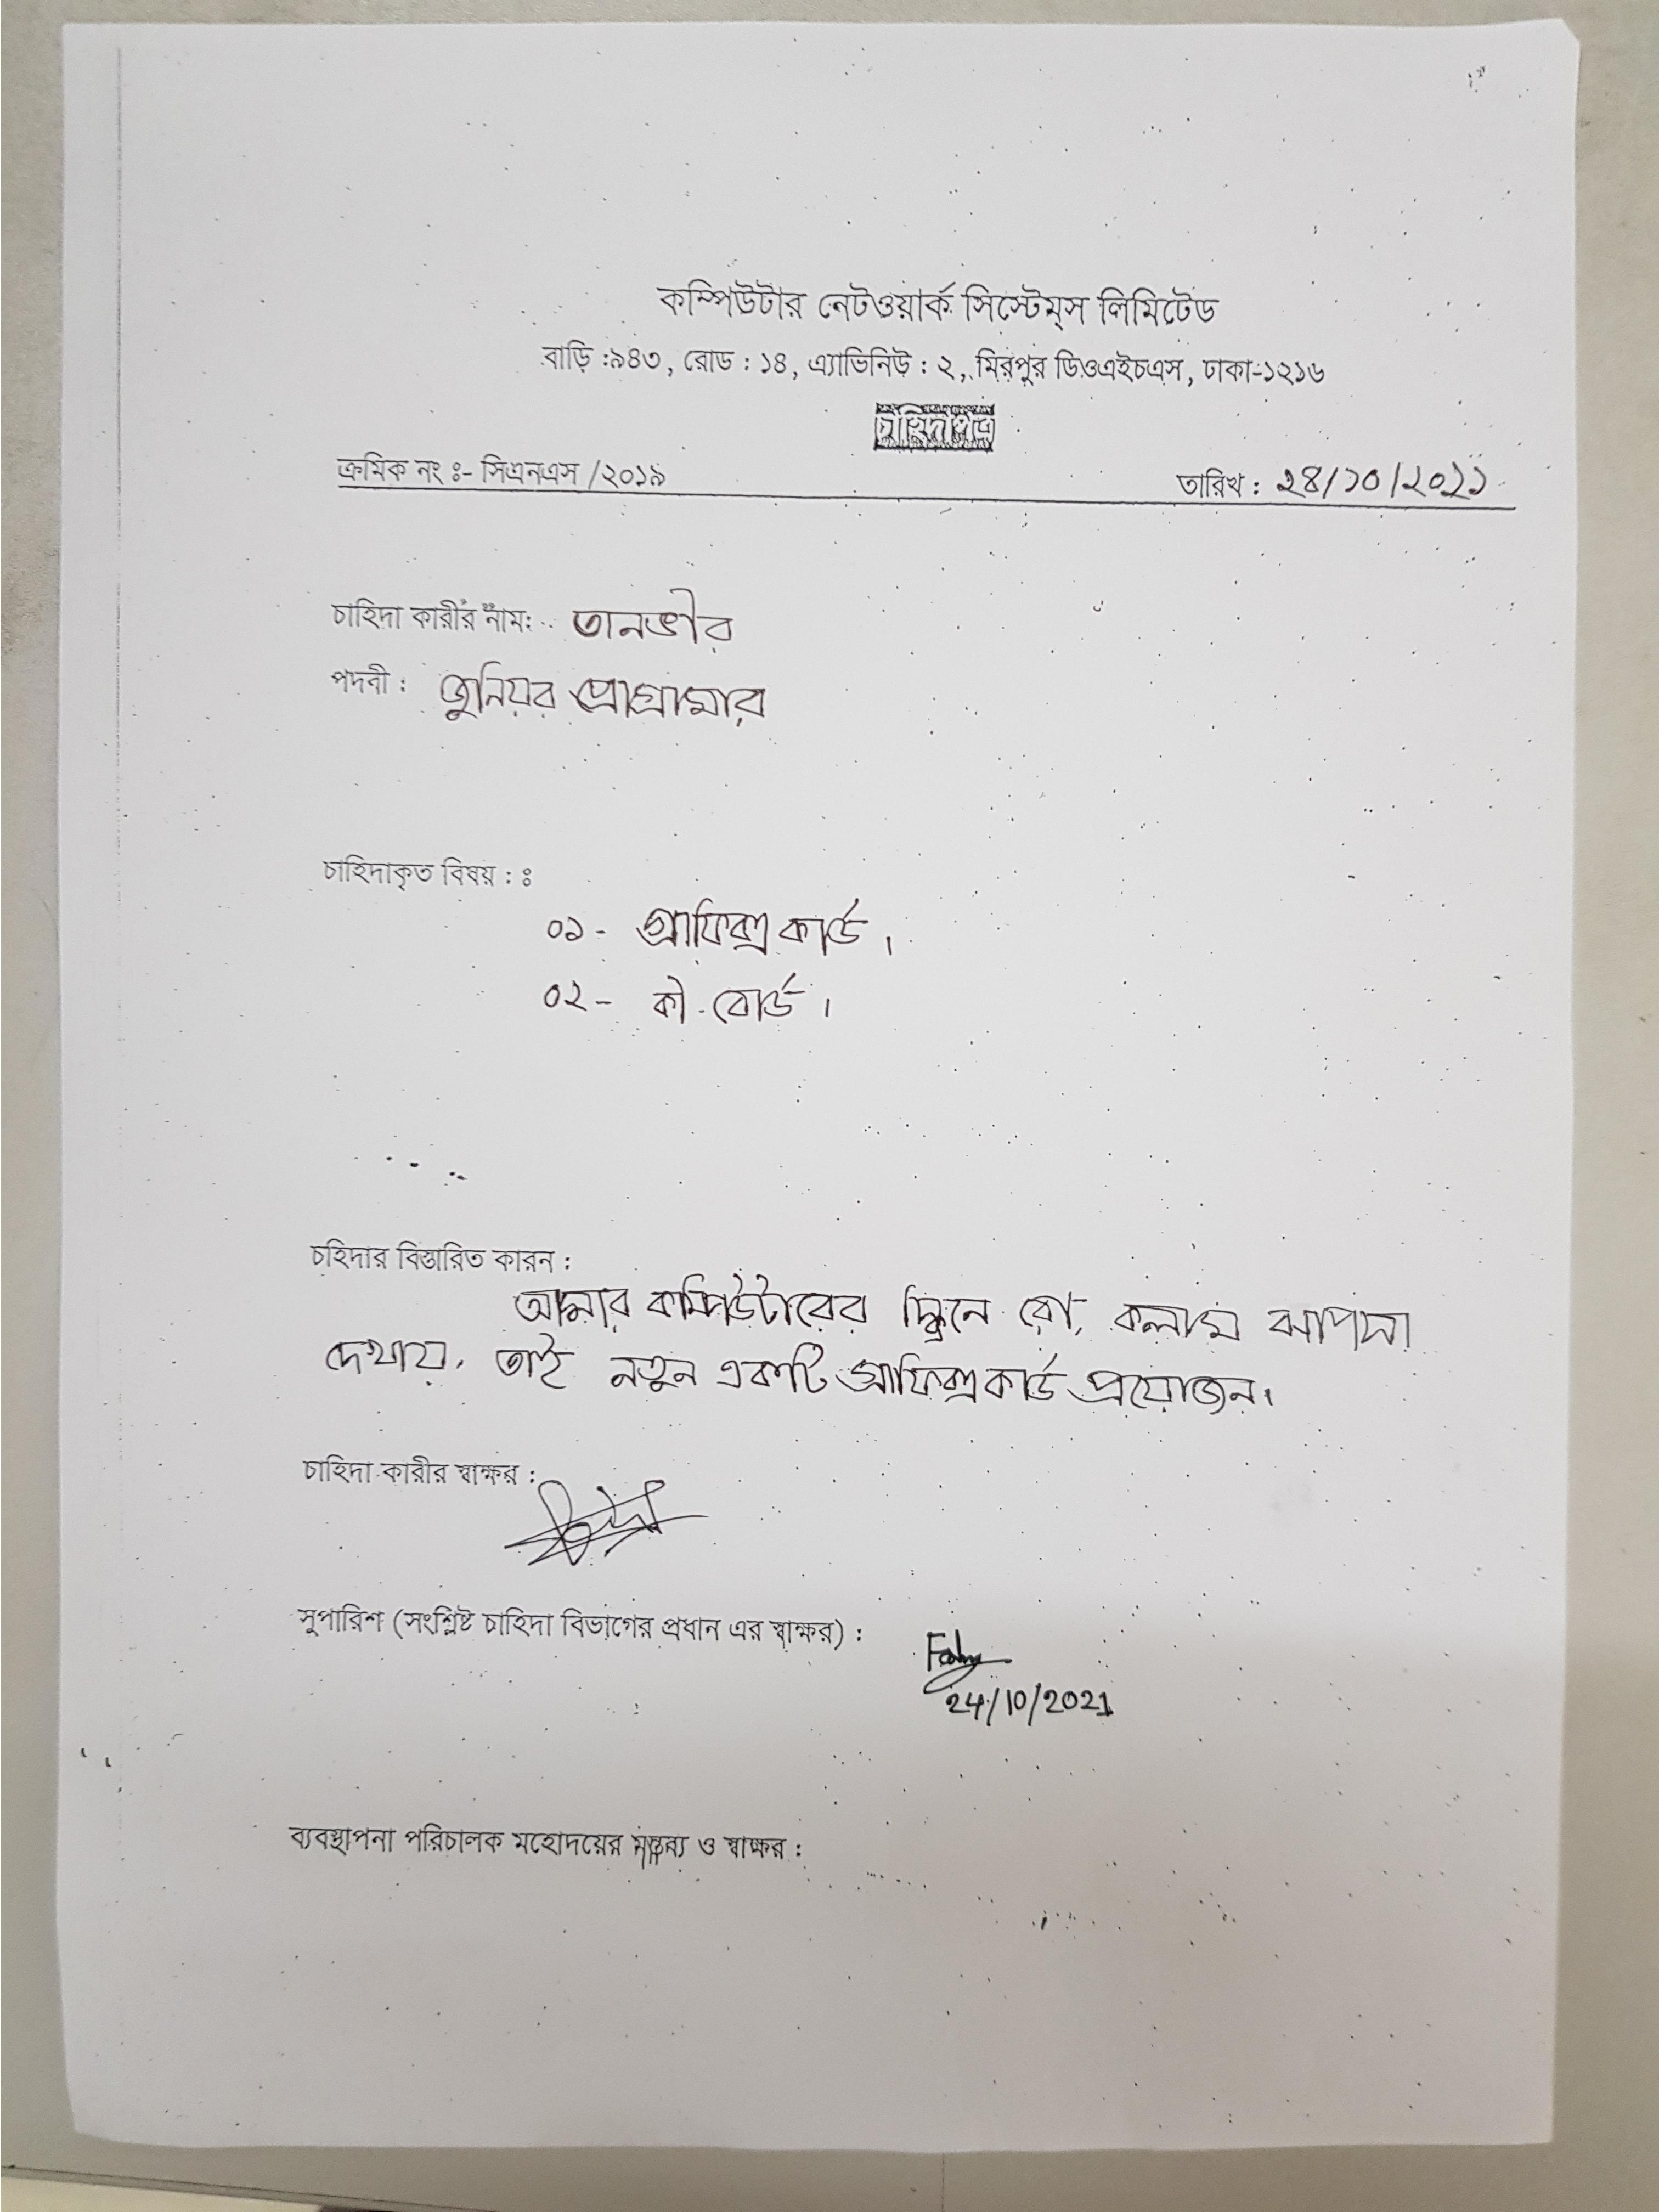 কম্পিউটার নেটওয়ার্ক সিস্টেম্‌স লিমিটেড
বাড়ি :৯৪৩, রোড : ১৪, এ্যাভিনিউ : ২, মিরপুর ডিওএইচএস, ঢাকা-১২১৬
চাহিদাপত্র
ক্রমিক নং ঃ- সিএনএস /২০১৯
তারিখ : ২৪/১০/২০২১
চাহিদা কারীর নাম: তানভীর
পদবী : জুনিয়র প্রোগ্রামার
চাহিদাকৃত বিষয় : ঃ
০১- গ্রাফিক্স কার্ড।
০২- কী-বোর্ড।
চহিদার বিস্তারিত কারন :
আমার কম্পিউটারের স্ক্রিনে রো, কলাম ঝাপসা
দেখায়, তাই নতুন একটি গ্রাফিক্স কার্ড প্রয়োজন।
চাহিদা কারীর স্বাক্ষর :
সুপারিশ (সংশ্লিষ্ট চাহিদা বিভাগের প্রধান এর স্বাক্ষর) :
24/10/2021
ব্যবস্থাপনা পরিচালক মহোদয়ের মন্তব্য ও স্বাক্ষর :